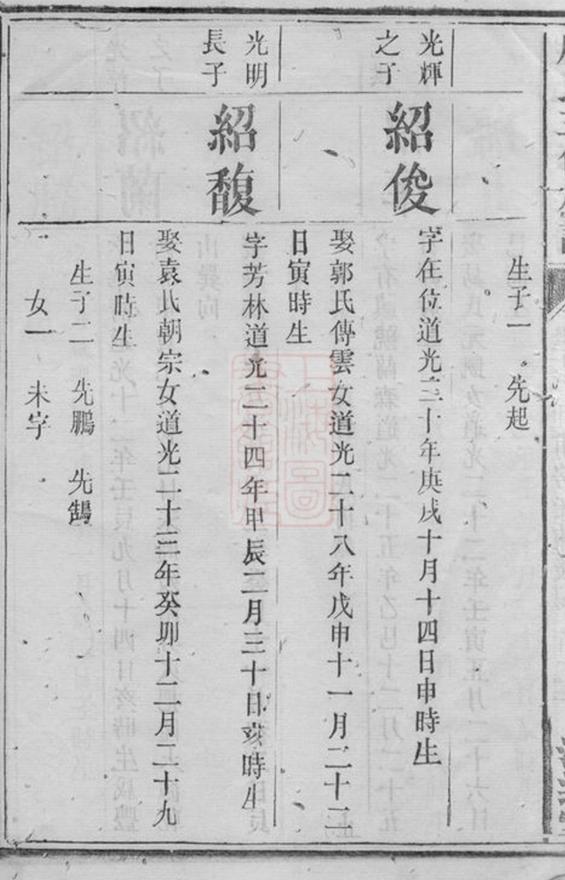 生子一 先起
光輝
之子
紹俊
字在位道光三十年庚戌十月十四日申時生
娶郭氏傳雲女道光二十八年戊申十一月二十二
日寅時生
光明
長子
紹馥
字芳林道光二十四年甲辰二月三十日亥時生
娶袁氏朝宗女道光二十三年癸卯十二月二十九
日寅時生
生子二 先鵬 先鵠
女一 未字